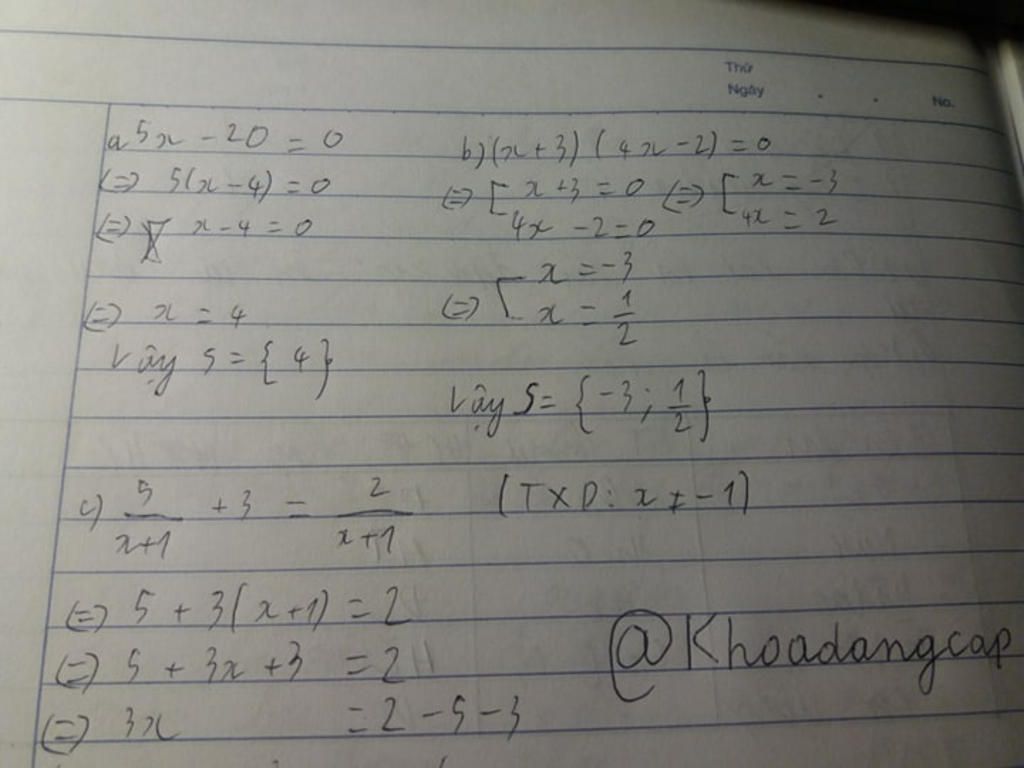 Thứ
Ngày . . No.
a 5x - 20 = 0
⇔ 5(x - 4) = 0
⇔ x - 4 = 0
⇔ x = 4
Vậy S = { 4 }
b) (x + 3) (4x - 2) = 0
⇔ [ x + 3 = 0 ⇔ [ x = -3
4x - 2 = 0 4x = 2
⇔ [ x = -3
x = 1/2
Vậy S = { -3 ; 1/2 }
c) 5/(x+1) + 3 = 2/(x+1) (TXD: x ≠ -1)
⇔ 5 + 3(x+1) = 2
⇔ 5 + 3x + 3 = 2
⇔ 3x = 2 - 5 - 3
@Khoadangcap